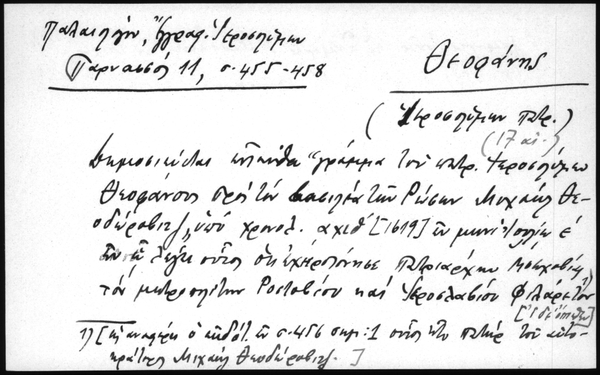 Παλαιολόγου, Ἔγγραφ. Ἱεροσολύμων
Παρνασσός 11, σ. 455-458
Θεοφάνης
(Ἱεροσολύμων πατρ.)
(17 αἰ.)
Δημοσιεύεται ἐνταῦθα "γράμμα τοῦ πατρ. Ἱεροσολύμων
Θεοφάνους πρὸς τὸν βασιλέα τῶν Ρώσων Μιχαὴλ Θε-
οδώροβιτζ, ὑπὸ χρονολ. αχιθ' [1619] ἐν μηνὶ Ἰουλίῳ ε'
ἐν ᾧ λέγει οὗτος ὅτι ἐχειροτόνησε πατριάρχην Μοσχοβίας
τὸν μητροπολίτην Ροστοβίου καὶ Ἱεροσλαβίου Φιλάρετον 1)
1) [ὡς ἀναφέρει ὁ ἐκδότ. ἐν σ. 456 σημ: 1 οὗτος ἦτο πατὴρ τοῦ αὐτο-
κράτορος Μιχαὴλ Θεοδώροβιτζ.]